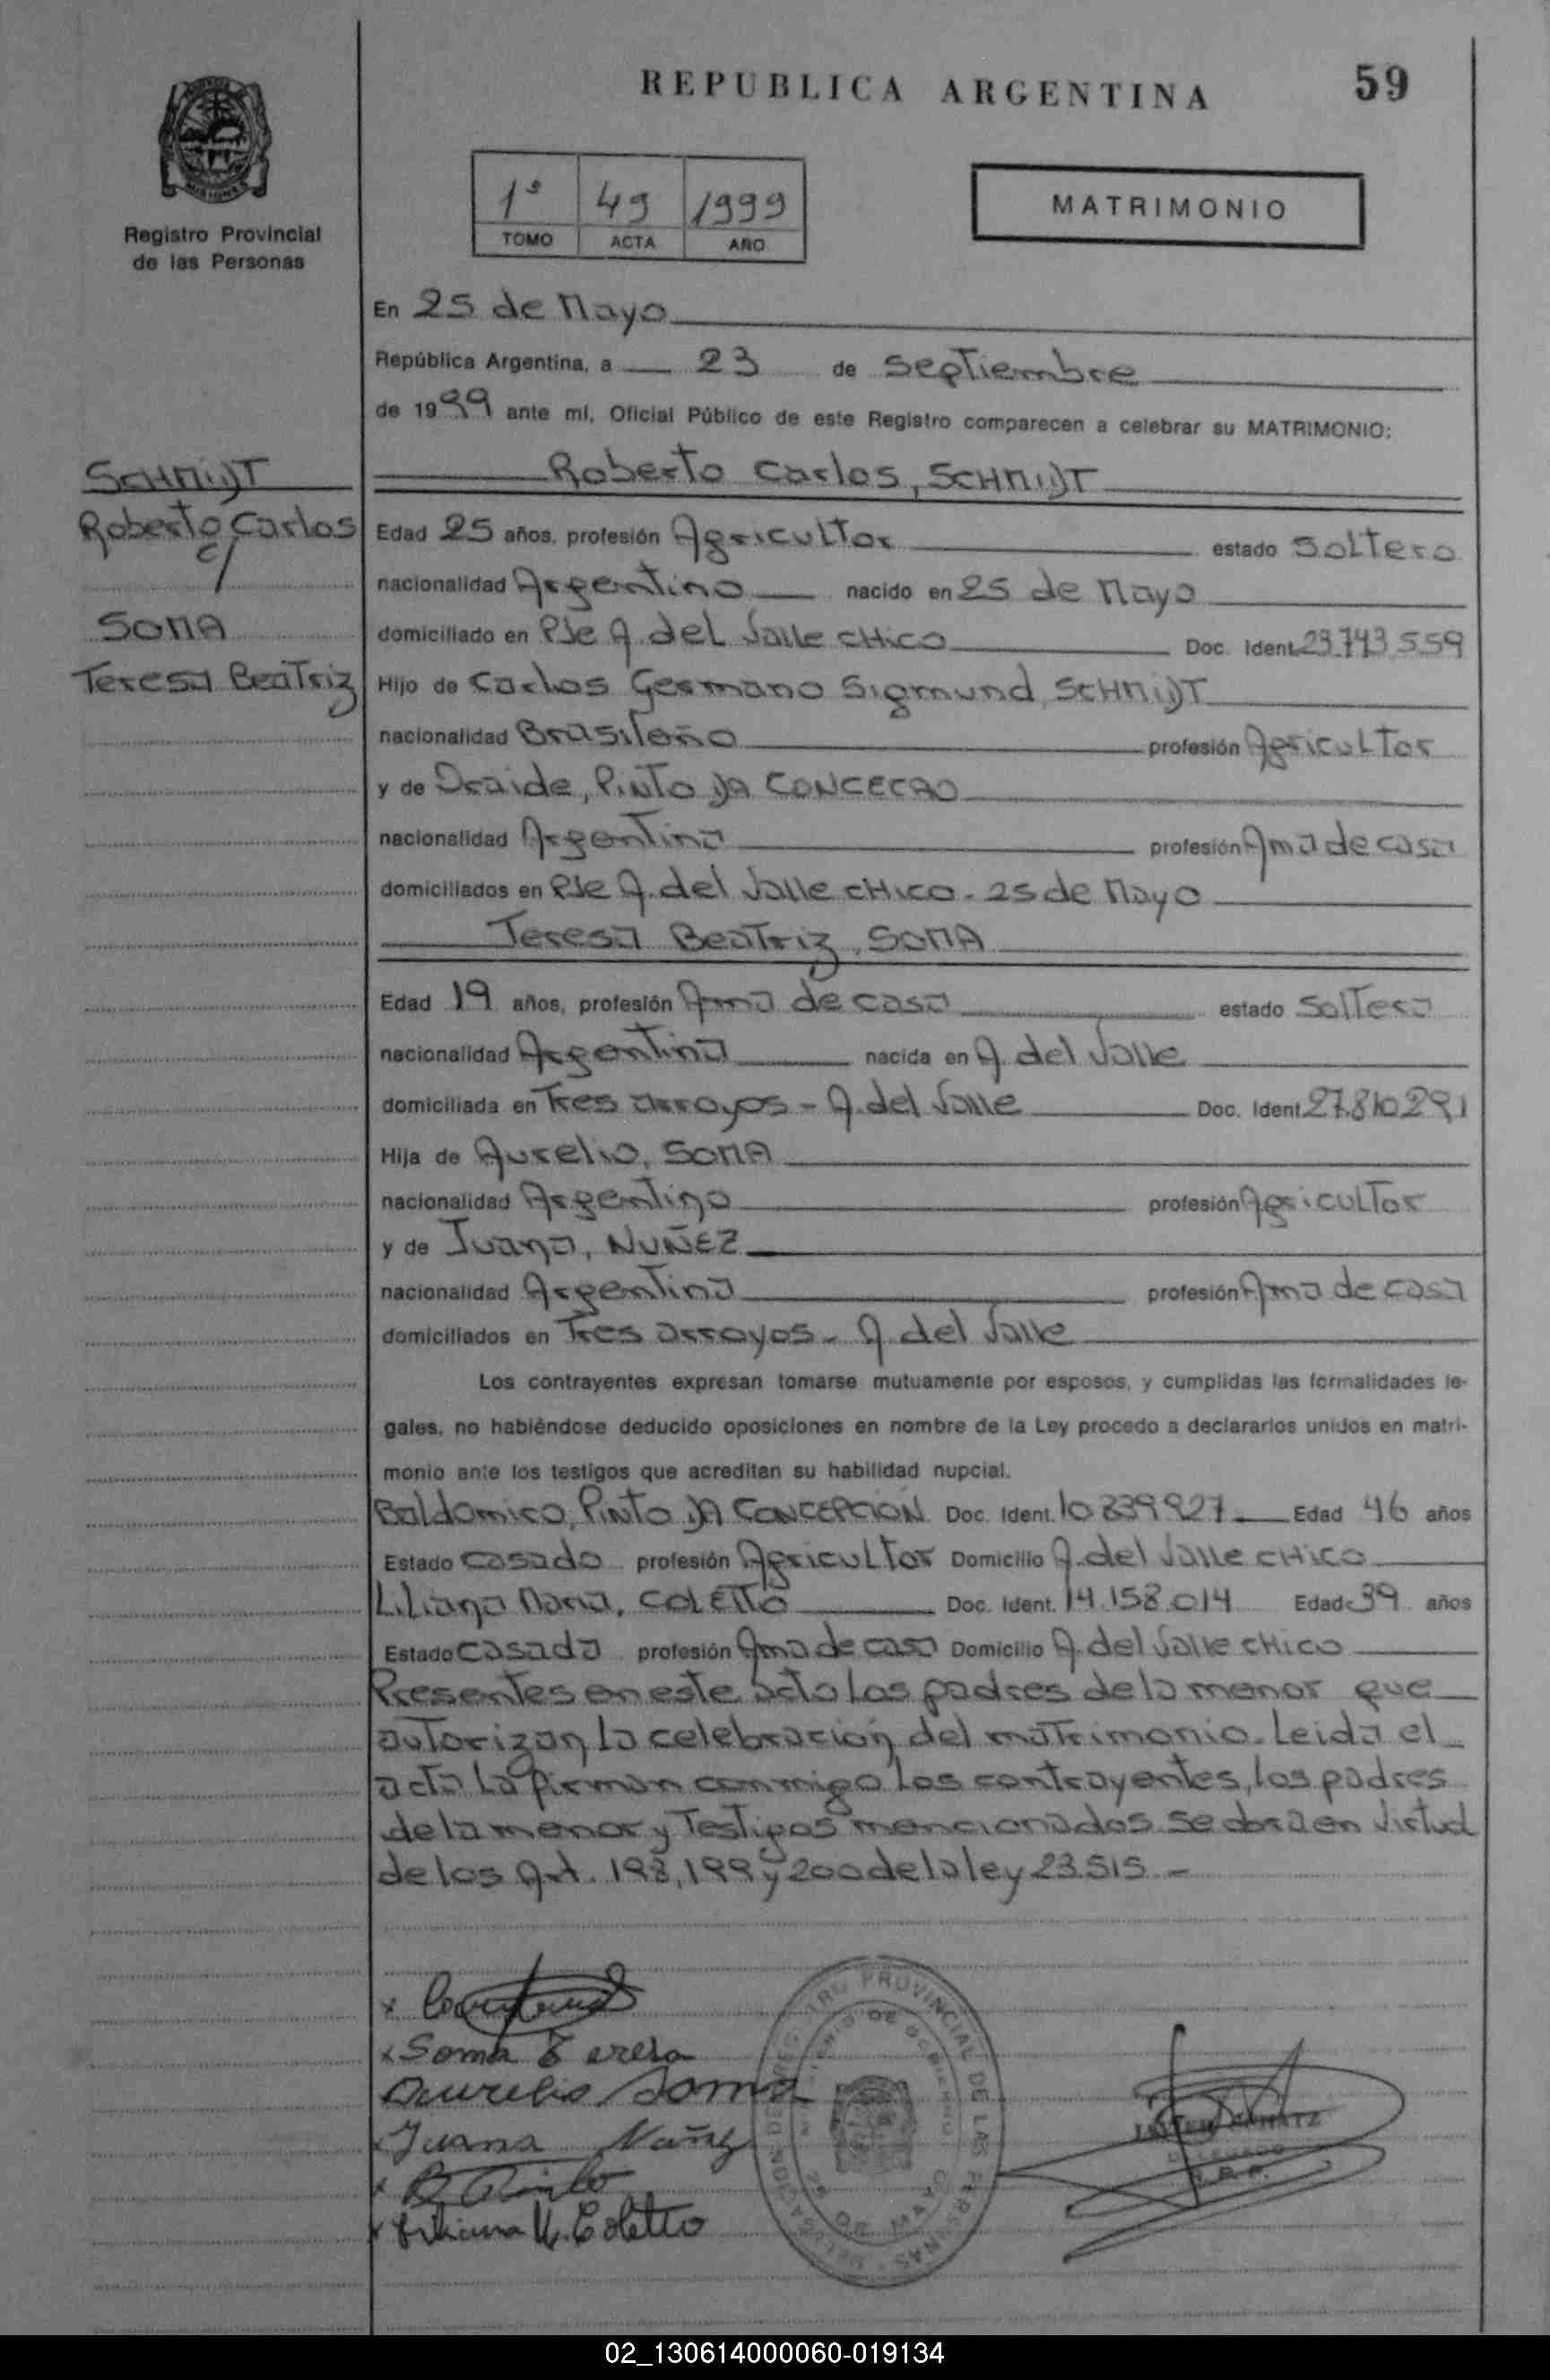 REPUBLICA ARGENTINA
59
Registro Provincial
de las Personas
1º 49 1999
TOMO ACTA AÑO
MATRIMONIO
En 25 de Mayo
República Argentina, a 23 de Septiembre
de 1999 ante mí, Oficial Público de este Registro comparecen a celebrar su MATRIMONIO:
SCHMIDT
Roberto Carlos
c/
SOMA
Teresa Beatriz
Roberto Carlos, SCHMIDT
Edad 25 años, profesión Agricultor estado Soltero
nacionalidad Argentino nacido en 25 de Mayo
domiciliado en Pje A. del Valle CHico Doc. Ident. 23.743.559
Hijo de Carlos Germano Sigmund, SCHMIDT
nacionalidad Brasileño profesión Agricultor
y de Oraide, PiNTo DA CONCECAO
nacionalidad Argentina profesión Ama de casa
domiciliados en Pje A. del Valle CHico - 25 de Mayo
Teresa Beatriz, SOMA
Edad 19 años, profesión Ama de casa estado Soltera
nacionalidad Argentina nacida en A. del Valle
domiciliada en Tres arroyos - A. del Valle Doc. Ident. 27.810.291
Hija de Aurelio, SOMA
nacionalidad Argentino profesión Agricultor
y de Juana, NUÑEZ
nacionalidad Argentina profesión Ama de casa
domiciliados en Tres arroyos - A. del Valle
Los contrayentes expresan tomarse mutuamente por esposos, y cumplidas las formalidades le-
gales, no habiéndose deducido oposiciones en nombre de la Ley procedo a declararlos unidos en matri-
monio ante los testigos que acreditan su habilidad nupcial.
Baldomiro, PiNTo DA CONCEPCION Doc. Ident. 10 839 927 Edad 46 años
Estado Casado profesión Agricultor Domicilio A. del Valle CHico
Liliana Maria, COLETTO Doc. Ident. 14.158.014 Edad 39 años
Estado Casada profesión Ama de casa Domicilio A. del Valle CHico
Presentes en este acto Los padres de la menor que
autorizan la celebración del matrimonio. Leida el
acta La firman conmigo los contrayentes, los padres
de la menor y Testigos mencionados se obra en virtud
de los Art. 198, 199 y 200 de la ley 23.515.-
x Soma Teresa
Aurelio Soma
x Juana Nuñez
x B Pinto
x Liliana M. Coletto
PROVINCIAL DE LAS PERSONAS
25 DE MAYO
DELEGADO
02_130614000060-019134